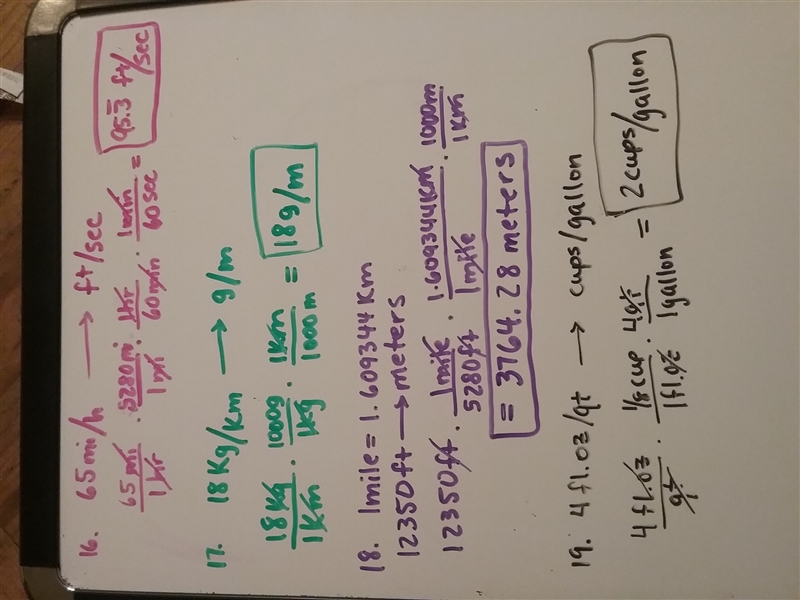 16. 65mi/h ⟶ ft/sec
65mi/1hr · 5280mi/1mi · 1hr/60min · 1min/60sec = 95.3̅ ft/sec
17. 18Kg/Km ⟶ g/m
18Kg/1Km · 1000g/1kg · 1Km/1000m = 18g/m
18. 1mile = 1.609344Km
12350ft ⟶ meters
12350ft · 1mile/5280ft · 1.609344Km/1mile · 1000m/1Km
= 3764.28 meters
19. 4 fl.oz/qt ⟶ cups/gallon
4 fl.oz/qt · 1/8 cup/1fl.oz · 4qt/1gallon = 2cups/gallon